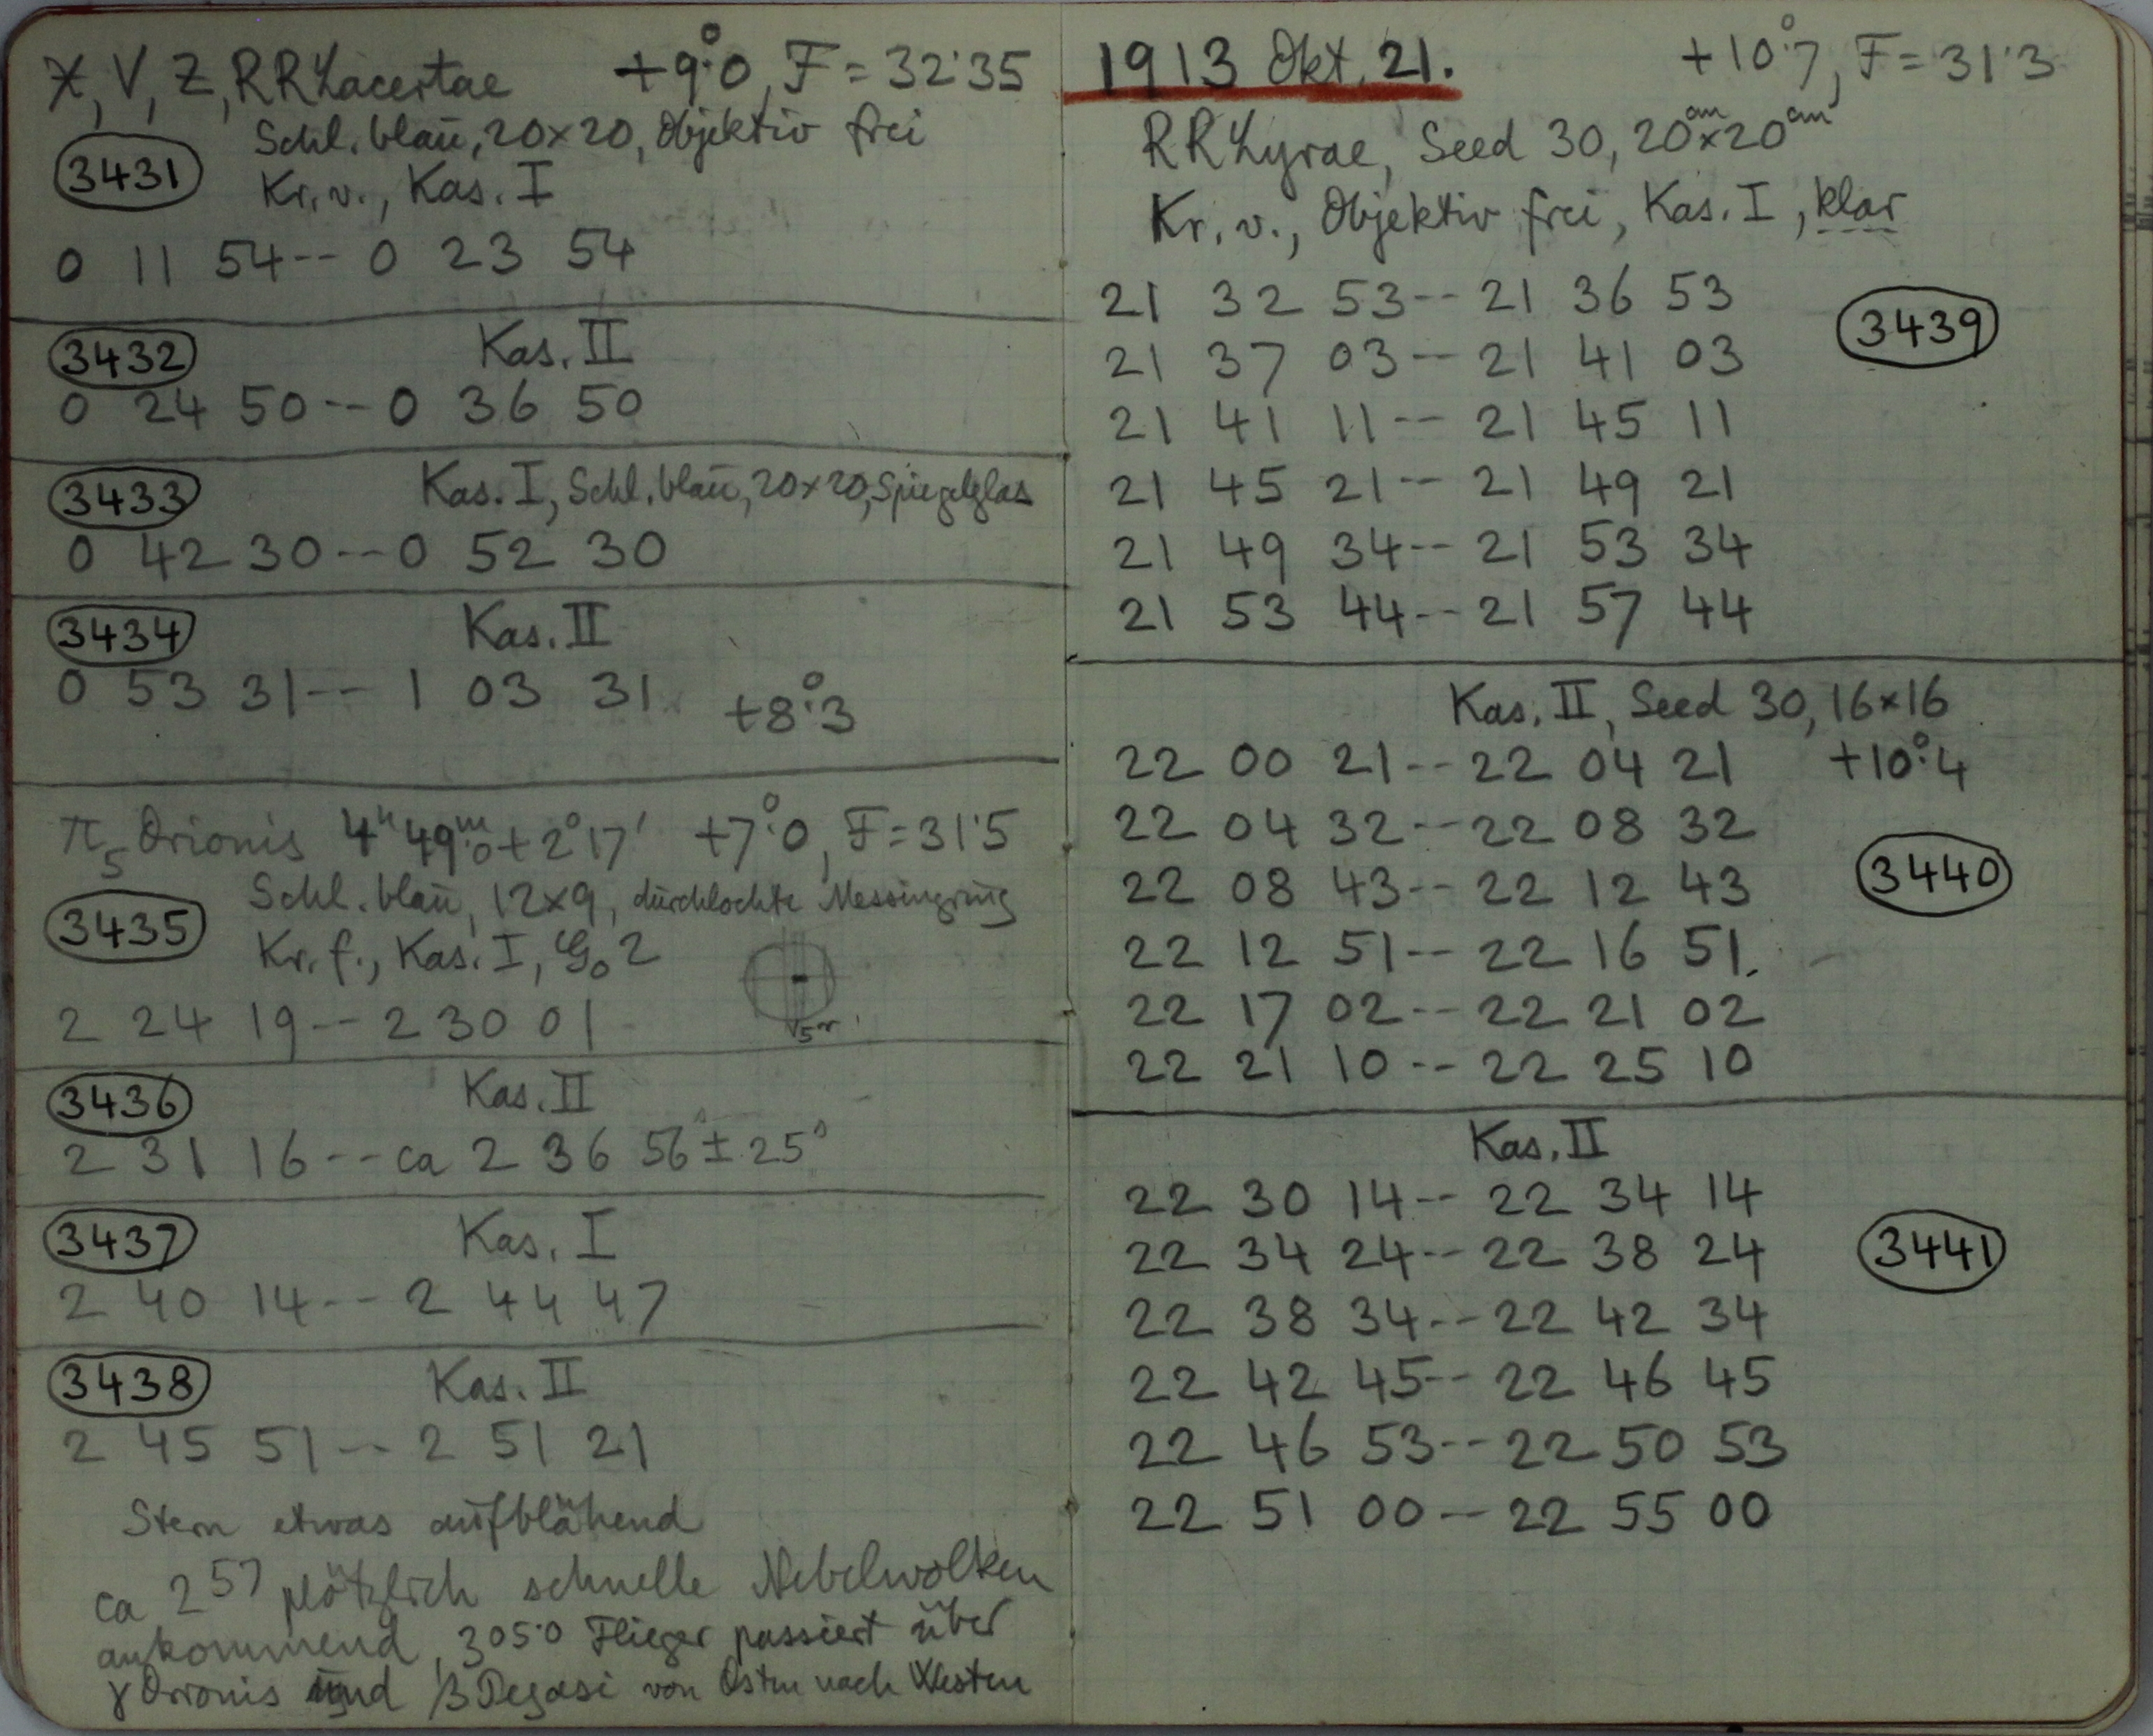 X, V, Z, RR Lacertae +9°.0, F = 32.35
Schl. blau, 20×20, Objektiv frei
3431
Kr. v., Kas. I
0 11 54 -- 0 23 54
3432 Kas. II
0 24 50 -- 0 36 50
3433 Kas. I, Schl. blau, 20×20, Spiegelglas
0 42 30 -- 0 52 30
3434 Kas. II
0 53 31 -- 1 03 31 +8°.3
π5 Orionis 4h 49m.0 + 2° 17' +7°.0, F = 31.5
Schl. blau, 12×9, durchlochte Messingring
3435
Kr. f., Kas. I, 2
2 24 19 -- 2 30 01
3436 Kas. II
2 31 16 -- ca 2 36 56s ± 2s.5
3437 Kas. I
2 40 14 -- 2 44 47
3438 Kas. II
2 45 51 -- 2 51 21
Stern etwas aufblähend
ca 2 57 plötzlich schnelle Nebelwolken
ankommend, 3 05.0 Flieger passiert über
γ Orionis und β Pegasi von Osten nach Westen
1913 Okt. 21. +10°.7, F = 31.3
RR Lyrae, Seed 30, 20cm×20cm
Kr. v., Objektiv frei, Kas. I, klar
21 32 53 -- 21 36 53
3439
21 37 03 -- 21 41 03
21 41 11 -- 21 45 11
21 45 21 -- 21 49 21
21 49 34 -- 21 53 34
21 53 44 -- 21 57 44
Kas. II, Seed 30, 16×16
22 00 21 -- 22 04 21 +10°.4
22 04 32 -- 22 08 32
22 08 43 -- 22 12 43 3440
22 12 51 -- 22 16 51.
22 17 02 -- 22 21 02
22 21 10 -- 22 25 10
Kas. II
22 30 14 -- 22 34 14
22 34 24 -- 22 38 24 3441
22 38 34 -- 22 42 34
22 42 45 -- 22 46 45
22 46 53 -- 22 50 53
22 51 00 -- 22 55 00